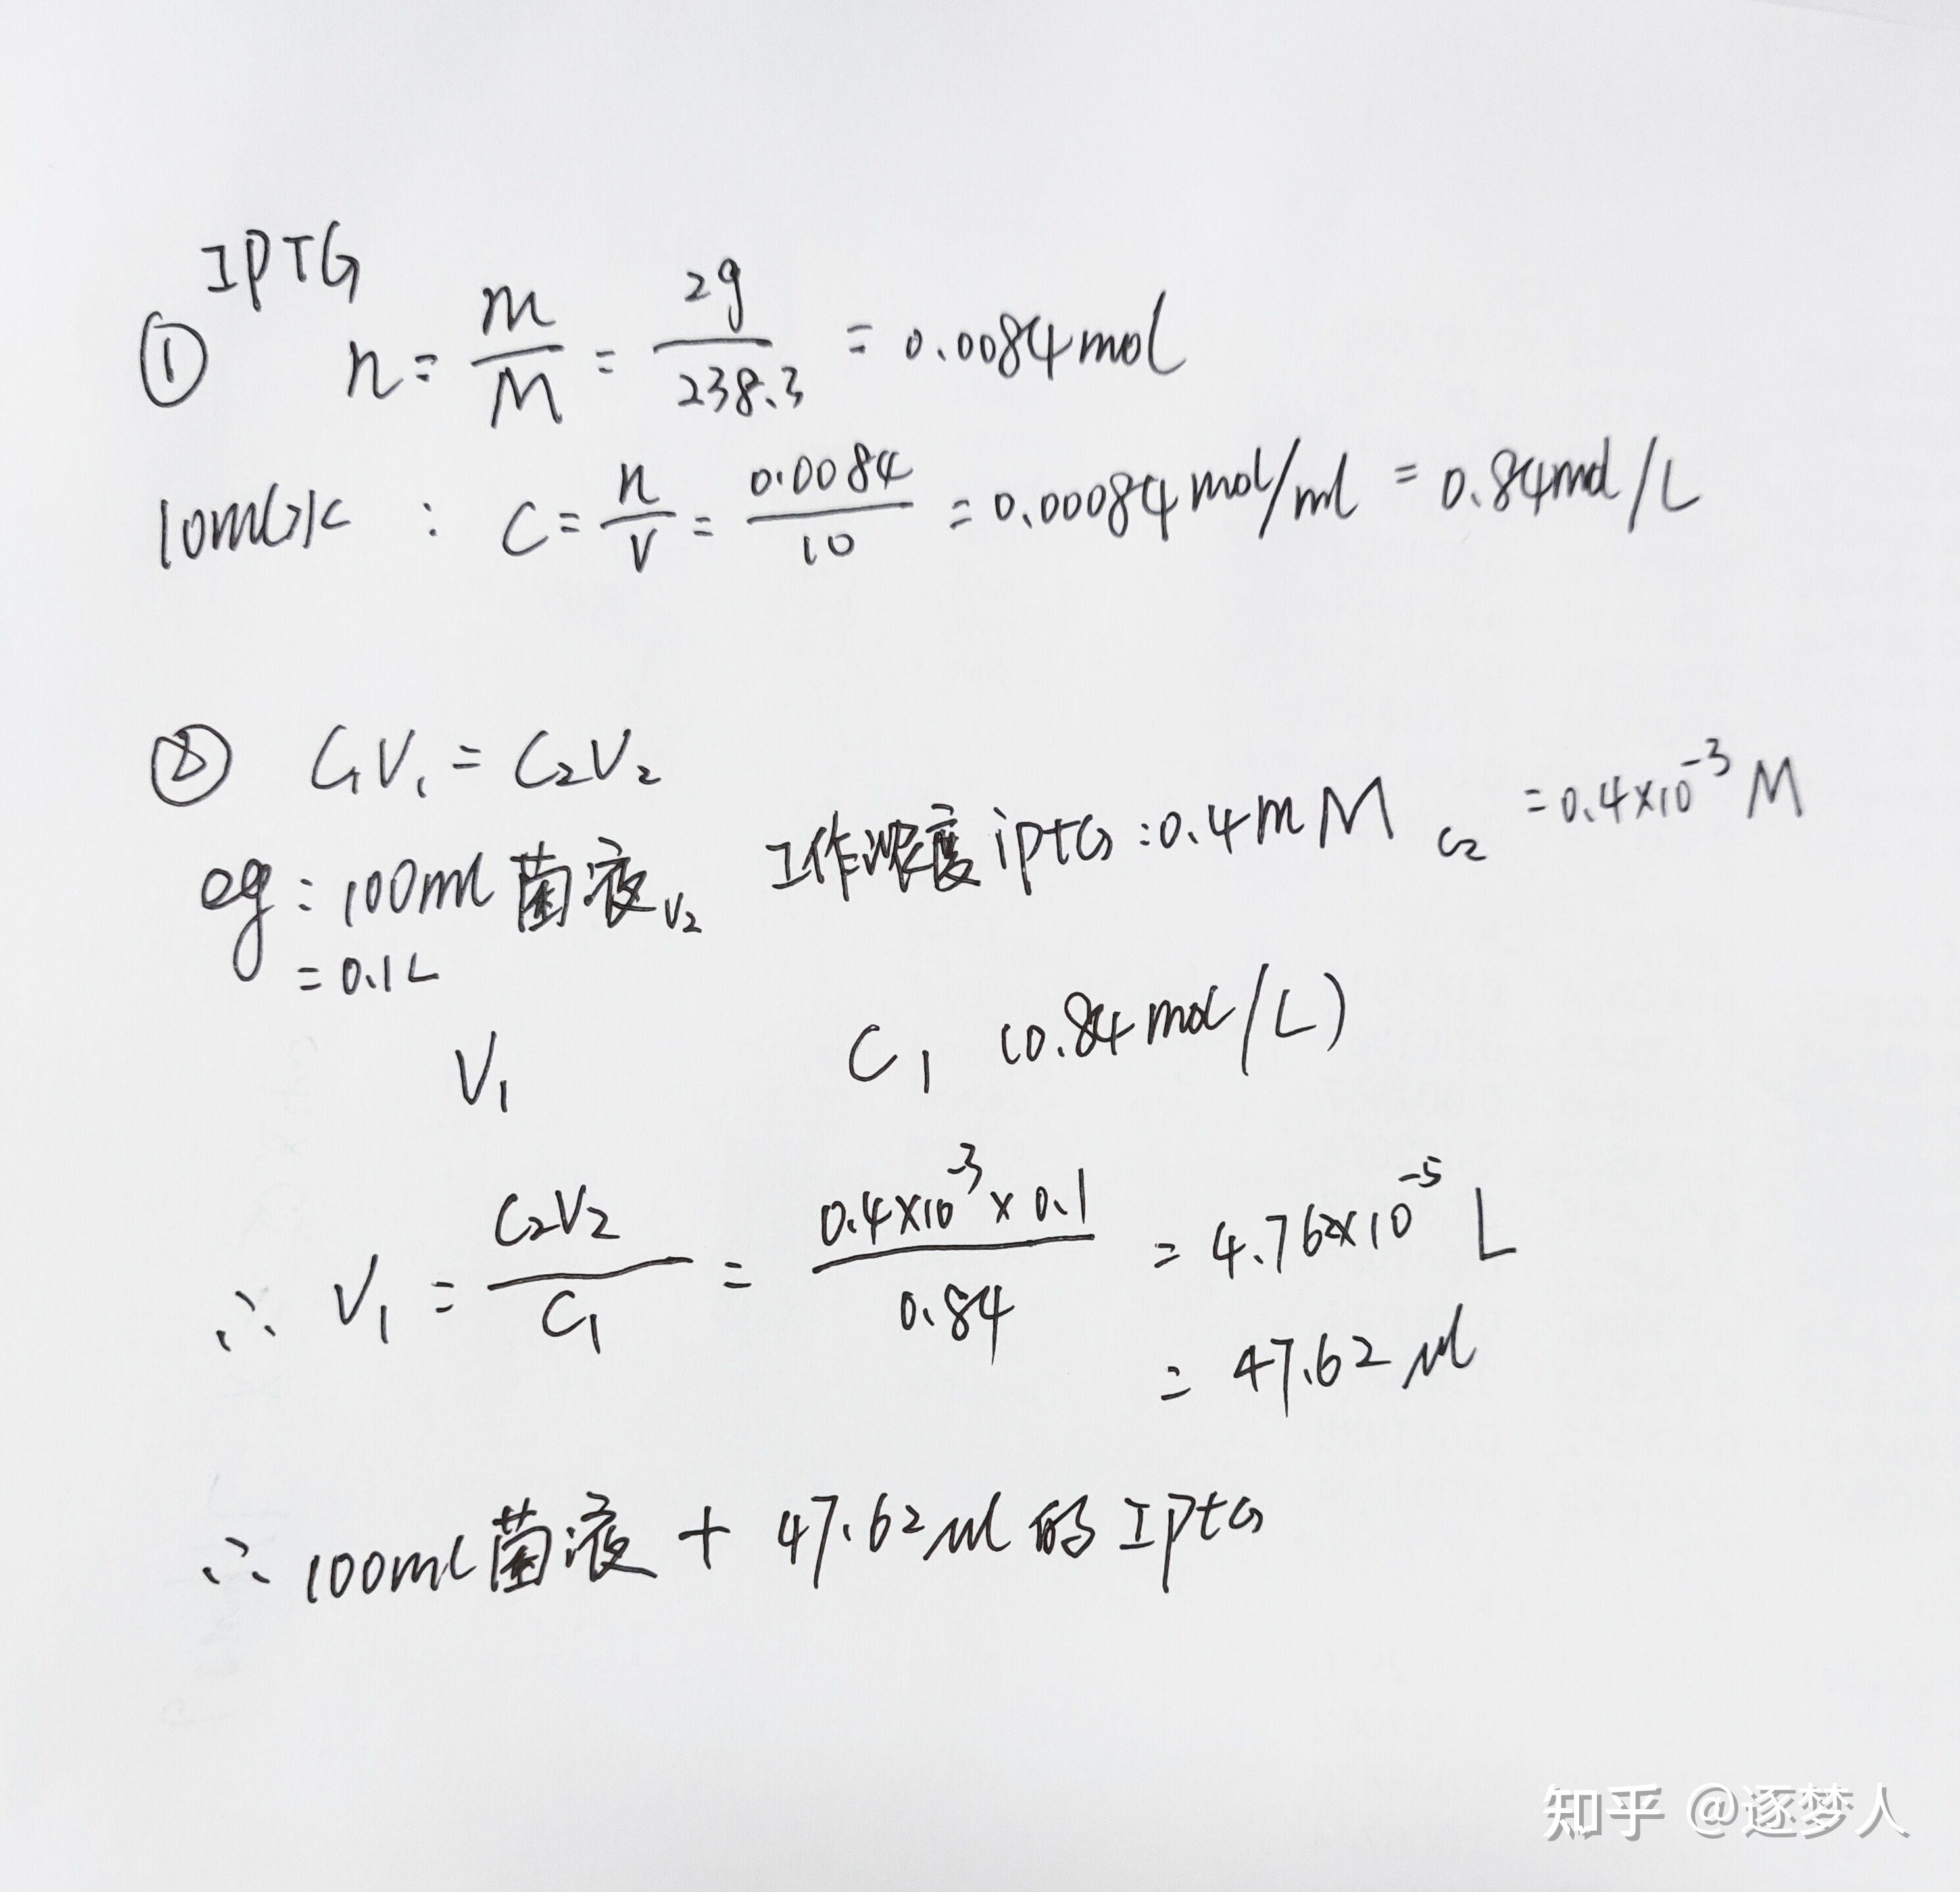 IPTG
① n = m/M = 2g/238.3 = 0.0084mol
10ml水 : C = n/V = 0.0084/10 = 0.00084mol/ml = 0.84mol/L
② C₁V₁ = C₂V₂
eg : 100ml菌液 V₂ 工作浓度iptG : 0.4mM C₂ = 0.4×10⁻³ M
= 0.1L
V₁ C₁ (0.84mol/L)
∴ V₁ = C₂V₂/C₁ = 0.4×10⁻³×0.1/0.84 = 4.762×10⁻⁵ L
= 47.62μl
∴ 100ml菌液 + 47.62μl的IptG
知乎 @逐梦人